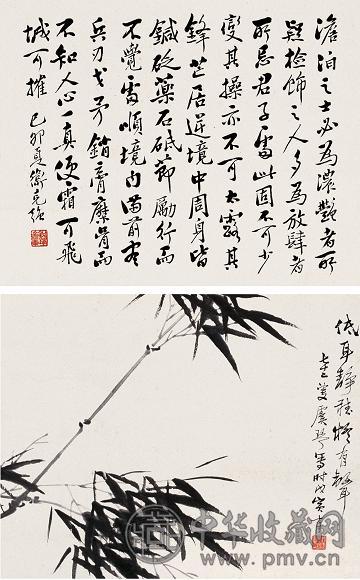 澹泊之士必為濃艷者所
疑檢飾之人多為放肆者
所忌君子處此固不可少
變其操亦不可太露其
鋒芒居逆境中周身皆
鍼砭藥石砥節勵行而
不覺處順境內滿前盡
兵刃戈矛銷膏糜骨而
不知人心一真便霜可飛
城可摧 己卯夏
低耳靜聽有聲
叟虞琴寫時戊寅
中华收藏网
www.pmv.cn